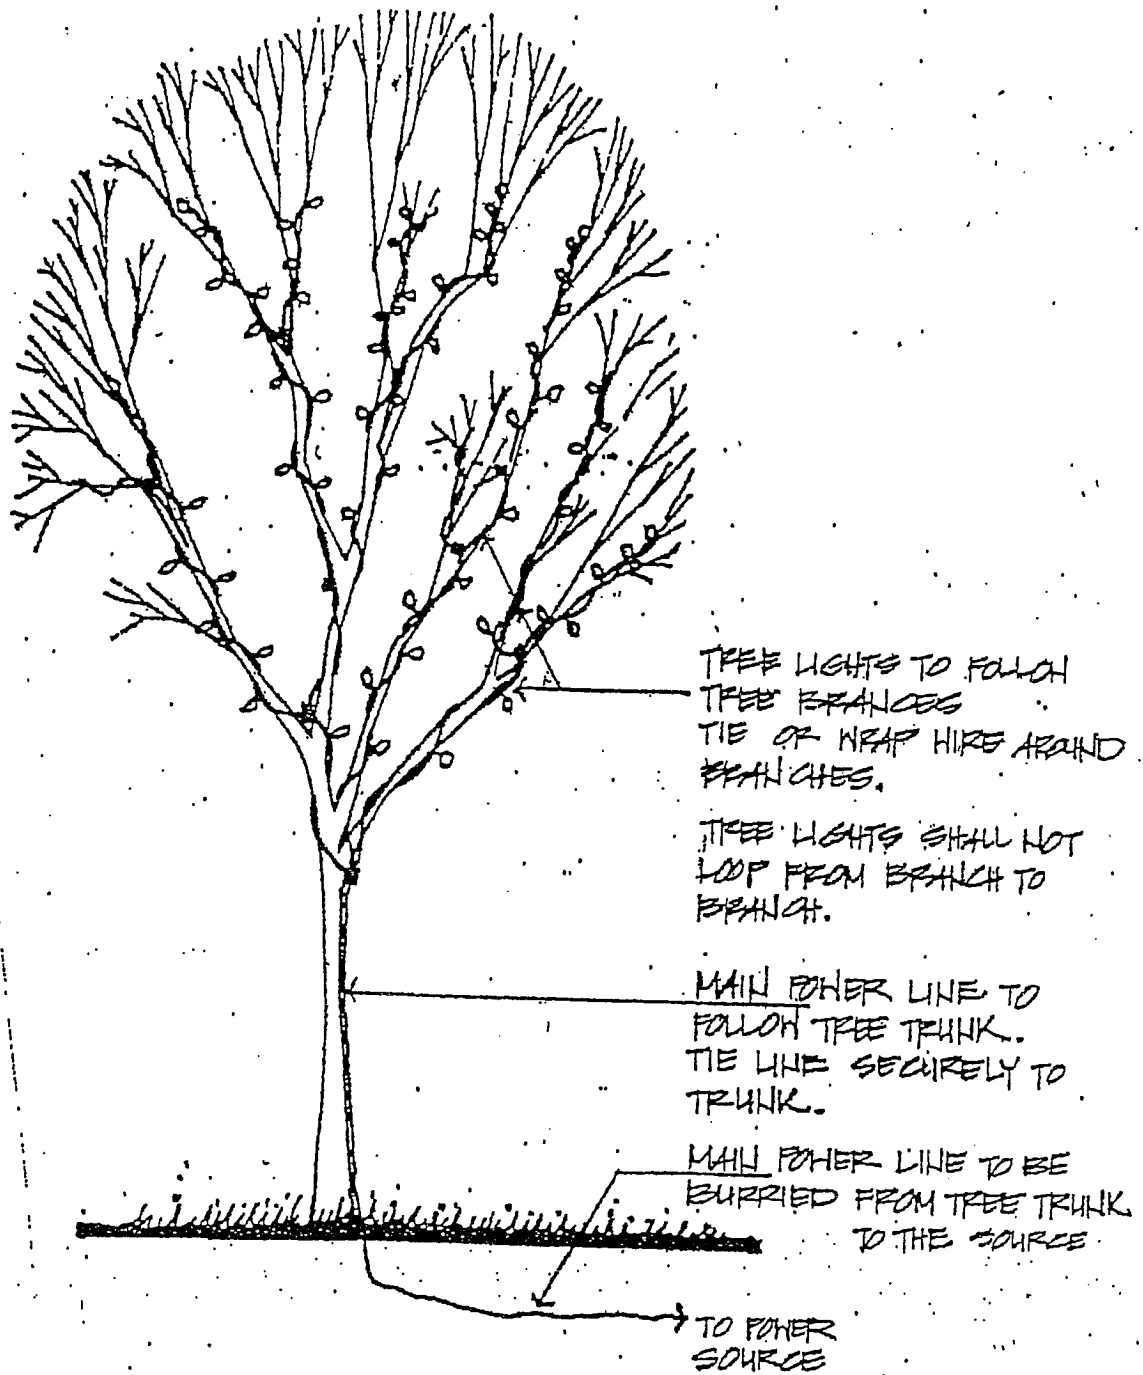 TREE LIGHTS TO FOLLOW
TREE BRANCES
TIE OR WRAP WIRE AROUND
BRANCHES.
TREE LIGHTS SHALL NOT
LOOP FROM BRANCH TO
BRANCH.
MAIN POWER LINE TO
FOLLOW TREE TRUNK.
TIE LINE SECURELY TO
TRUNK.
MAIN POWER LINE TO BE
BURRIED FROM TREE TRUNK
TO THE SOURCE
TO POWER
SOURCE